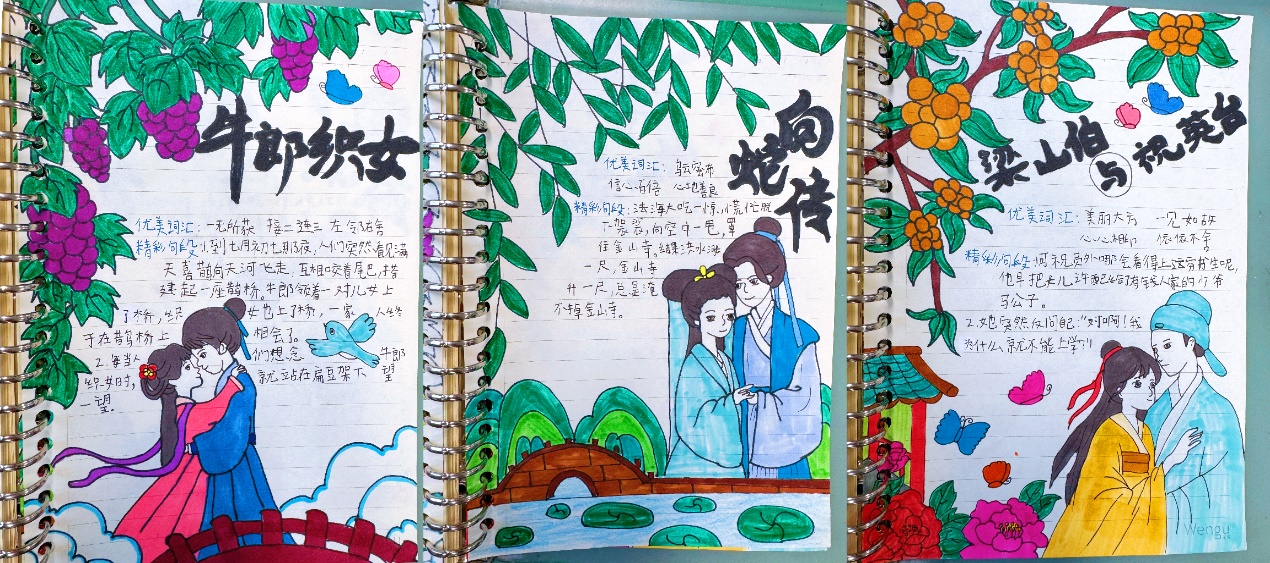 牛郎织女
优美词汇：一无所获 接二连三 左邻右舍
精彩句段：1.到七月初七那夜，人们突然看见满
天喜鹊向天河飞走，互相咬着尾巴，搭
建起一座鹊桥。牛郎领着一对儿女上
了桥，织 女也上了桥，一家 人终
于在鹊桥上 相会了。
2.每当人 们想念 牛郎
织女时， 就站在扁豆架下 望
一望。
白蛇传
优美词汇：
信心百倍 心地善良
精彩句段：法海大吃一惊，慌忙脱
下袈裟，向空中一甩，罩
住金山寺。洪水涨
一尺，金山寺
升一尺，总是淹
不掉金山寺。
梁山伯与祝英台
优美词汇：美丽大方 一见如故
心心相印 依依不舍
精彩句段：祝员外哪会看得上这穷书生呢，
他早把女儿许配给了有钱人家的少爷
马公子。
2.她突然反问自己："对啊！我
为什么就不能上学？"
Wengy